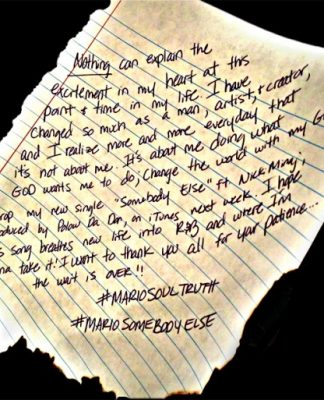 Nothing can explain the
excitement in my heart at this
point & time in my life I have
changed so much as a man, artist, & creator,
and I realize more and more everyday that
it's not about me. It's about me doing what
GOD wants me to do, Change the world with my
my new single "Somebody Else" ft Nick Minaj,
by Polow Da Don, on iTunes next week. I hope
song breathes new life into R&B and where I'm
take it! I want to thank you all for your patience...
the wait is over!!
#MARIOSOULTRUTH
#MARIOSOMEBODYELSE